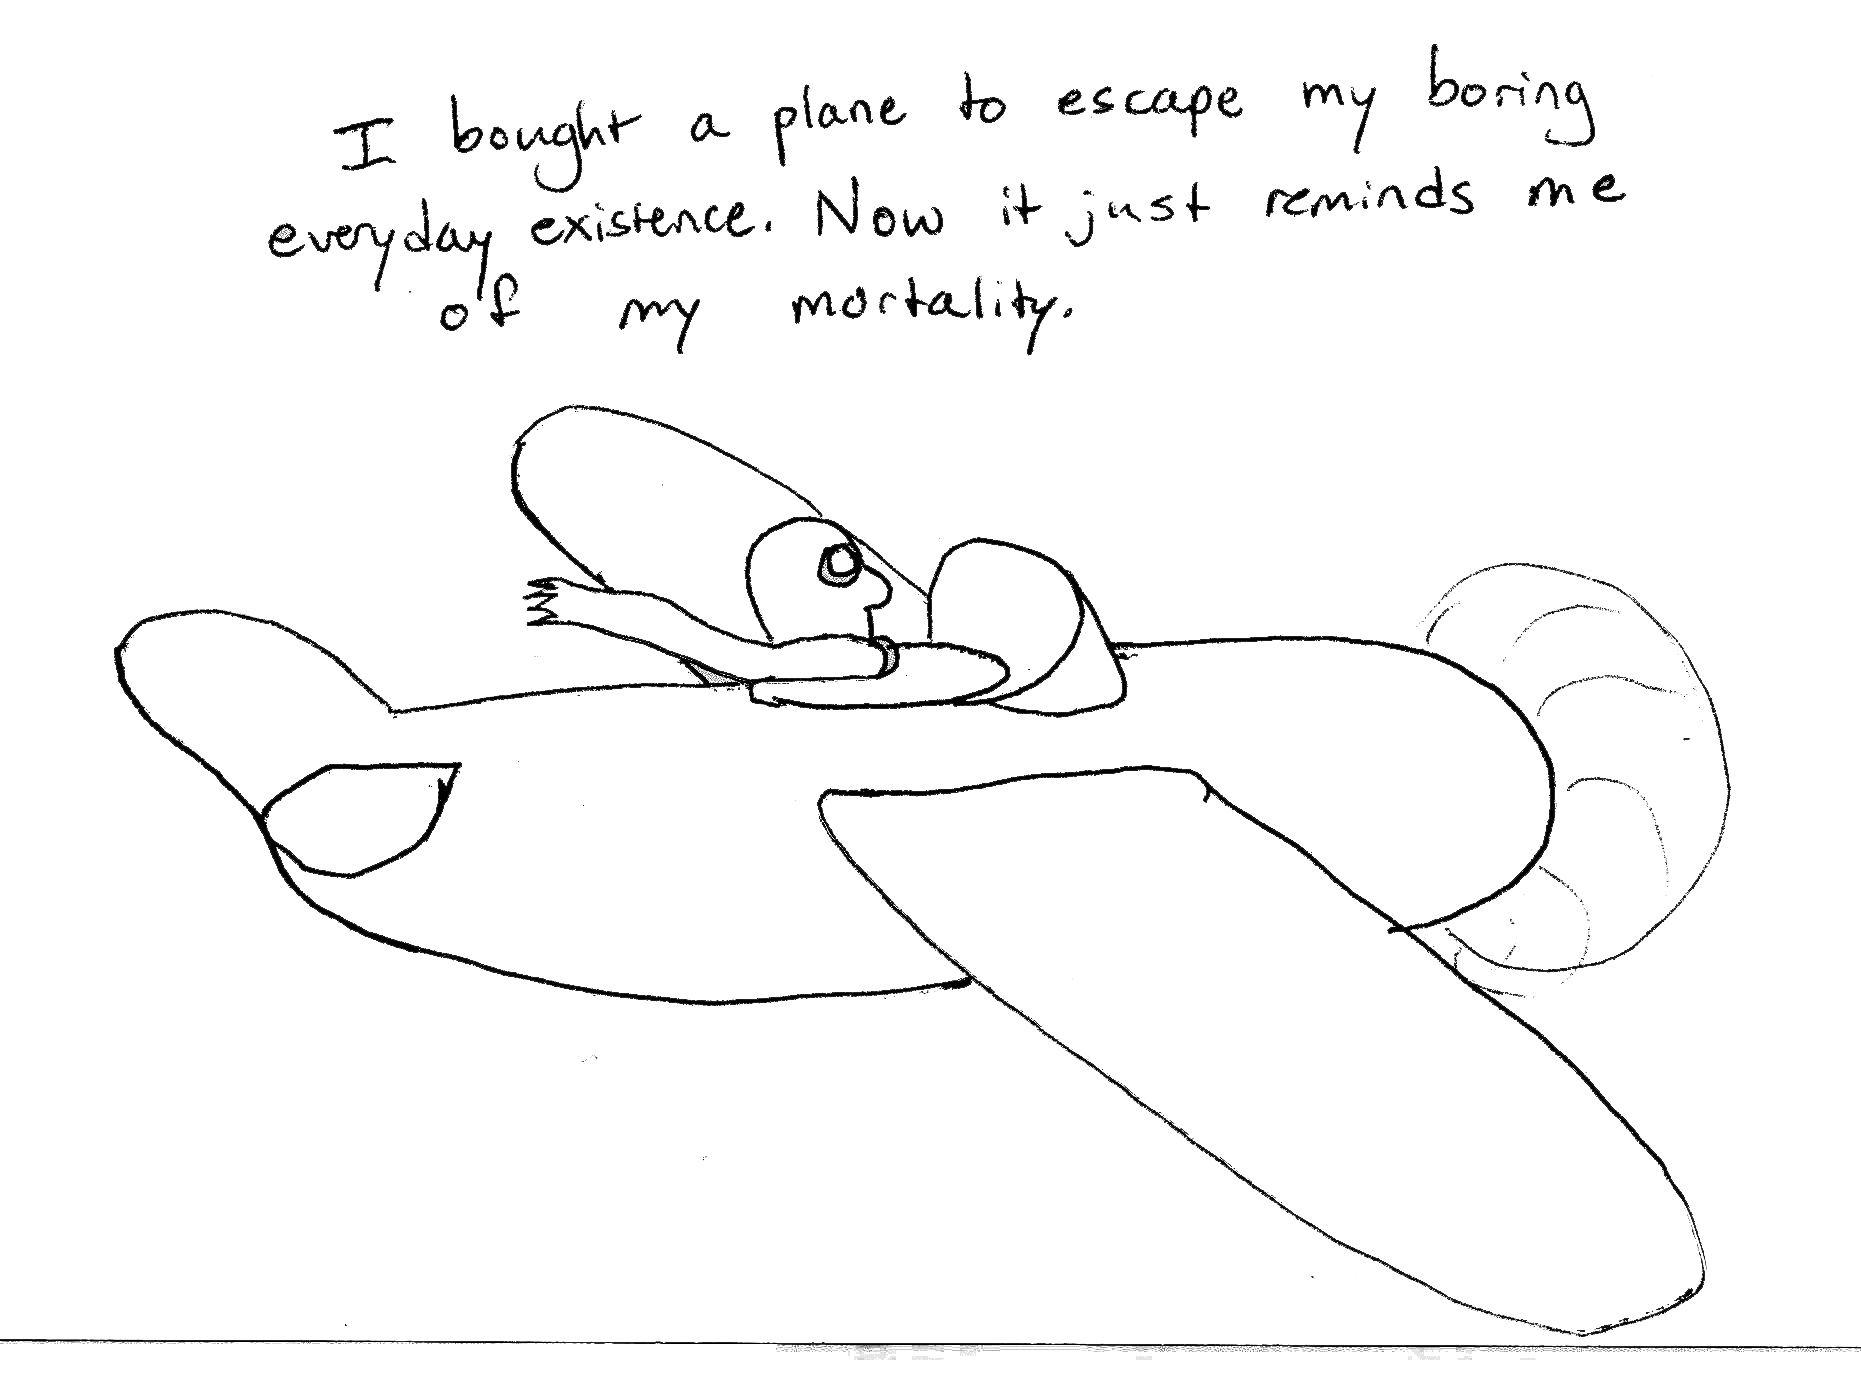 I bought a plane to escape my boring
everyday existence. Now it just reminds me
of my mortality.